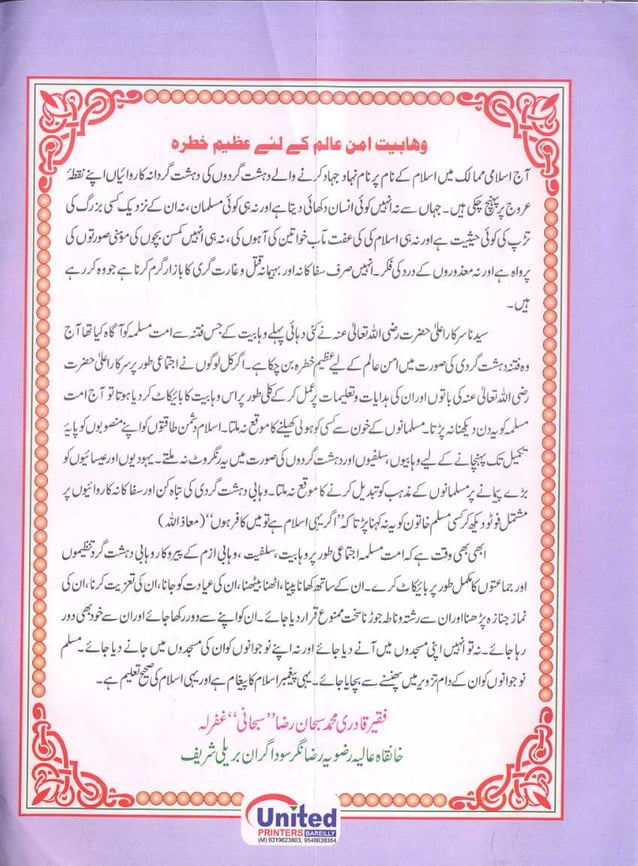 وہابیت امن عالم کے لئے عظیم خطرہ
آج اسلامی ممالک میں اسلام کے نام پر نام نہاد جہاد کرنے والے دہشت گردوں کی دہشت گردانہ کاروائیاں اپنے نقطۂ
عروج پر پہنچ چکی ہیں۔ جہاں سے نہ انہیں کوئی انسان دکھائی دیتا ہے اور نہ ہی کوئی مسلمان، نہ ان کے نزدیک کسی بزرگ کی
تڑپ کی کوئی حیثیت ہے اور نہ ہی اسلام کی کی عفت مآب خواتین کی آہوں کی، نہ ہی انہیں کمسن بچوں کی موہنی صورتوں کی
پرواہ ہے اور نہ معذوروں کے درد کی فکر۔ انہیں صرف سفاکانہ اور بہیمانہ قتل و غارت گری کا بازار گرم کرنا ہے جو وہ کر رہے
ہیں۔
سیدنا سرکار اعلیٰ حضرت رضی اللہ تعالیٰ عنہ نے کئی دہائی پہلے وہابیت کے جس فتنہ سے امت مسلمہ کو آگاہ کیا تھا آج
وہ فتنہ دہشت گردی کی صورت میں امن عالم کے لیے عظیم خطرہ بن چکا ہے۔ اگر کل لوگوں نے اجتماعی طور پر سرکار اعلیٰ حضرت
رضی اللہ تعالیٰ عنہ کی باتوں اور ان کی ہدایات و تعلیمات پر عمل کر کے کلی طور پر اس وہابیت کا بائیکاٹ کر دیا ہوتا تو آج امت
مسلمہ کو یہ دن دیکھنا نہ پڑتا۔ مسلمانوں کے خون سے کسی کو ہولی کھیلنے کا موقع نہ ملتا۔ اسلام دشمن طاقتوں کو اپنے منصوبوں کو پایۂ
تکمیل تک پہنچانے کے لیے وہابیوں، سلفیوں اور دہشت گردوں کی صورت میں یہ رنگروٹ نہ ملتے۔ یہودیوں اور عیسائیوں کو
بڑے پیمانے پر مسلمانوں کے مذہب کو تبدیل کرنے کا موقع نہ ملتا۔ وہابی دہشت گردی کی تباہ کن اور سفاکانہ کاروائیوں پر
مشتمل فوٹو دیکھ کر کسی مسلم خاتون کو یہ نہ کہنا پڑتا کہ "اگر یہی اسلام ہے تو میں کافر ہوں" (معاذ اللہ)
ابھی بھی وقت ہے کہ امت مسلمہ اجتماعی طور پر وہابیت، سلفیت، وہابی ازم کے پیروکار وہابی دہشت گرد تنظیموں
اور جماعتوں کا مکمل طور پر بائیکاٹ کرے۔ ان کے ساتھ کھانا پینا، اٹھنا بیٹھنا، ان کی عیادت کو جانا، ان کی تعزیت کرنا، ان کی
نماز جنازہ پڑھنا اور ان سے رشتہ و ناطہ جوڑنا سخت ممنوع قرار دیا جائے۔ ان کو اپنے سے دور رکھا جائے اور ان سے خود بھی دور
رہا جائے۔ نہ تو انہیں اپنی مسجدوں میں آنے دیا جائے اور نہ اپنے نوجوانوں کو ان کی مسجدوں میں جانے دیا جائے۔ مسلم
نوجوانوں کو ان کے دام تزویر میں پھنسنے سے بچایا جائے۔ یہی پیغمبر اسلام کا پیغام ہے اور یہی اسلام کی صحیح تعلیم ہے۔
فقیر قادری محمد سبحان رضا "سبحانی" غفرلہ
خانقاہ عالیہ رضویہ رضا نگر سوداگران بریلی شریف
United
PRINTERS BAREILLY
(M) 9319623603, 9548639384